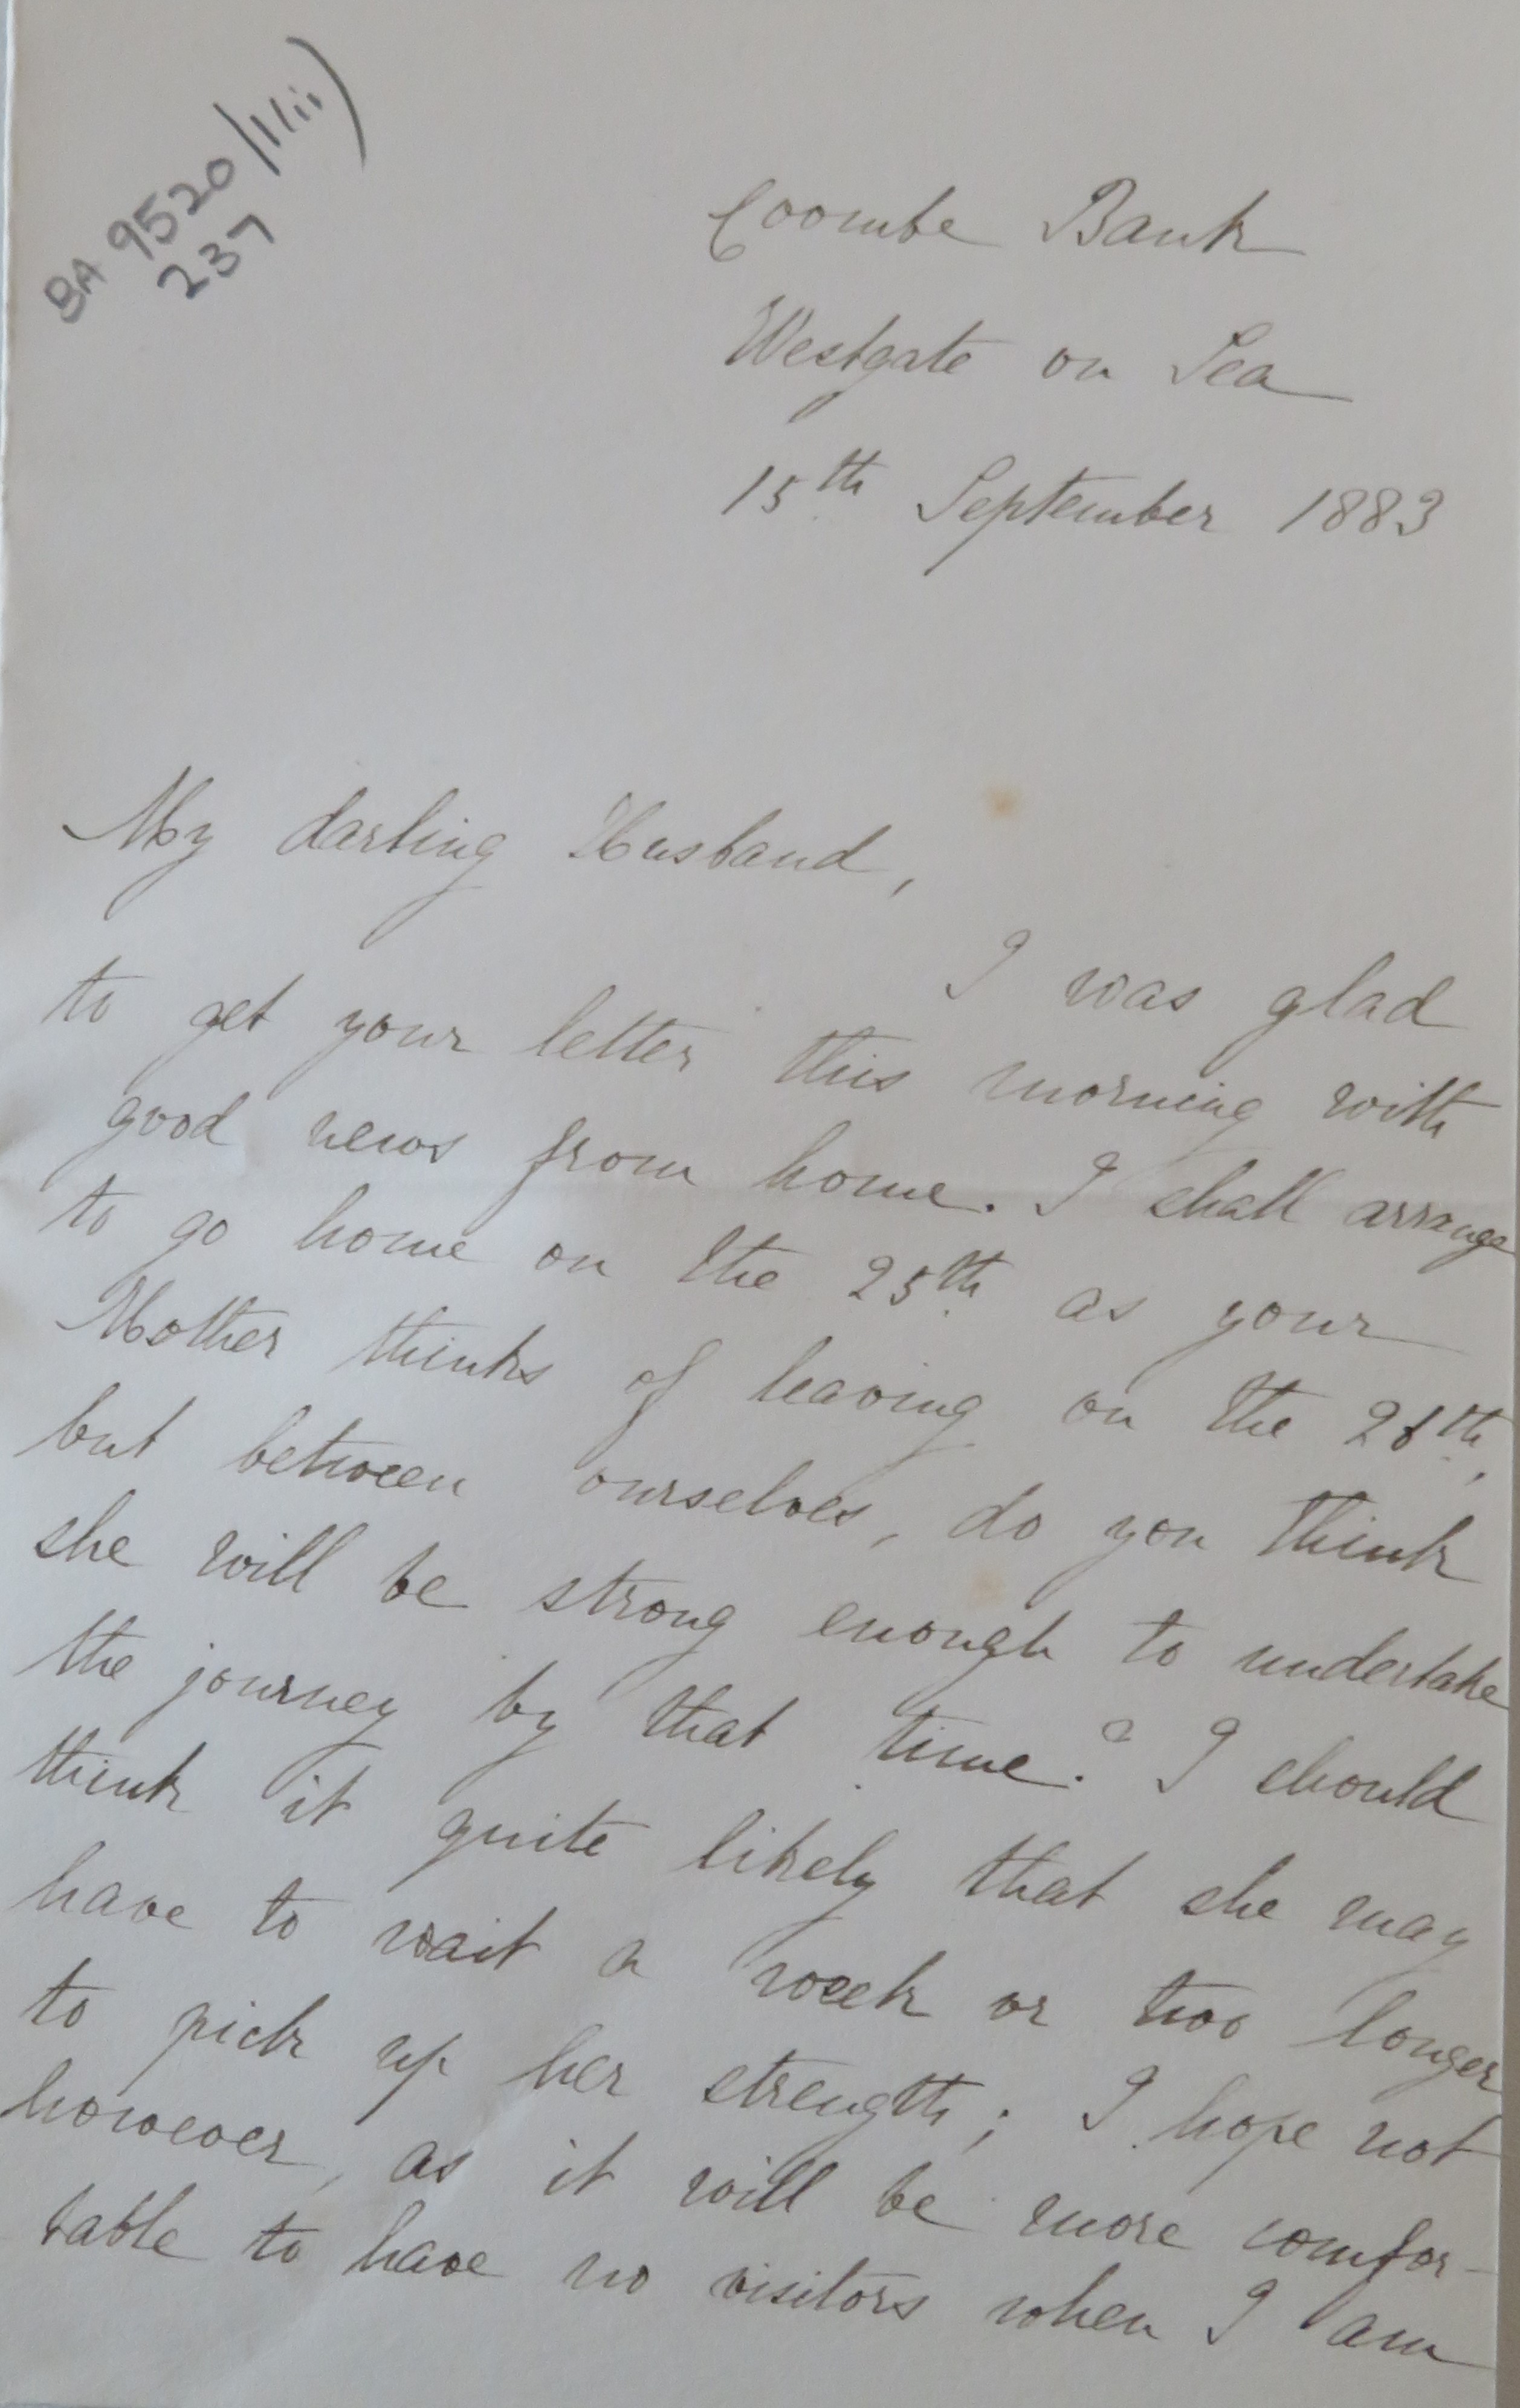 BA 9520/11ii)
237
Coombe Bank
Westgate on Sea
15th September 1883
My darling Husband,
I was glad
to get your letter this morning with
good news from home. I shall arrange
to go home on the 25th as your
Mother thinks of leaving on the 28th,
but between ourselves, do you think
she will be strong enough to undertake
the journey by that time? I should
think it quite likely that she may
have to wait a week or two longer
to pick up her strength; I hope not
however, as it will be more comfor-
table to have no visitors when I am